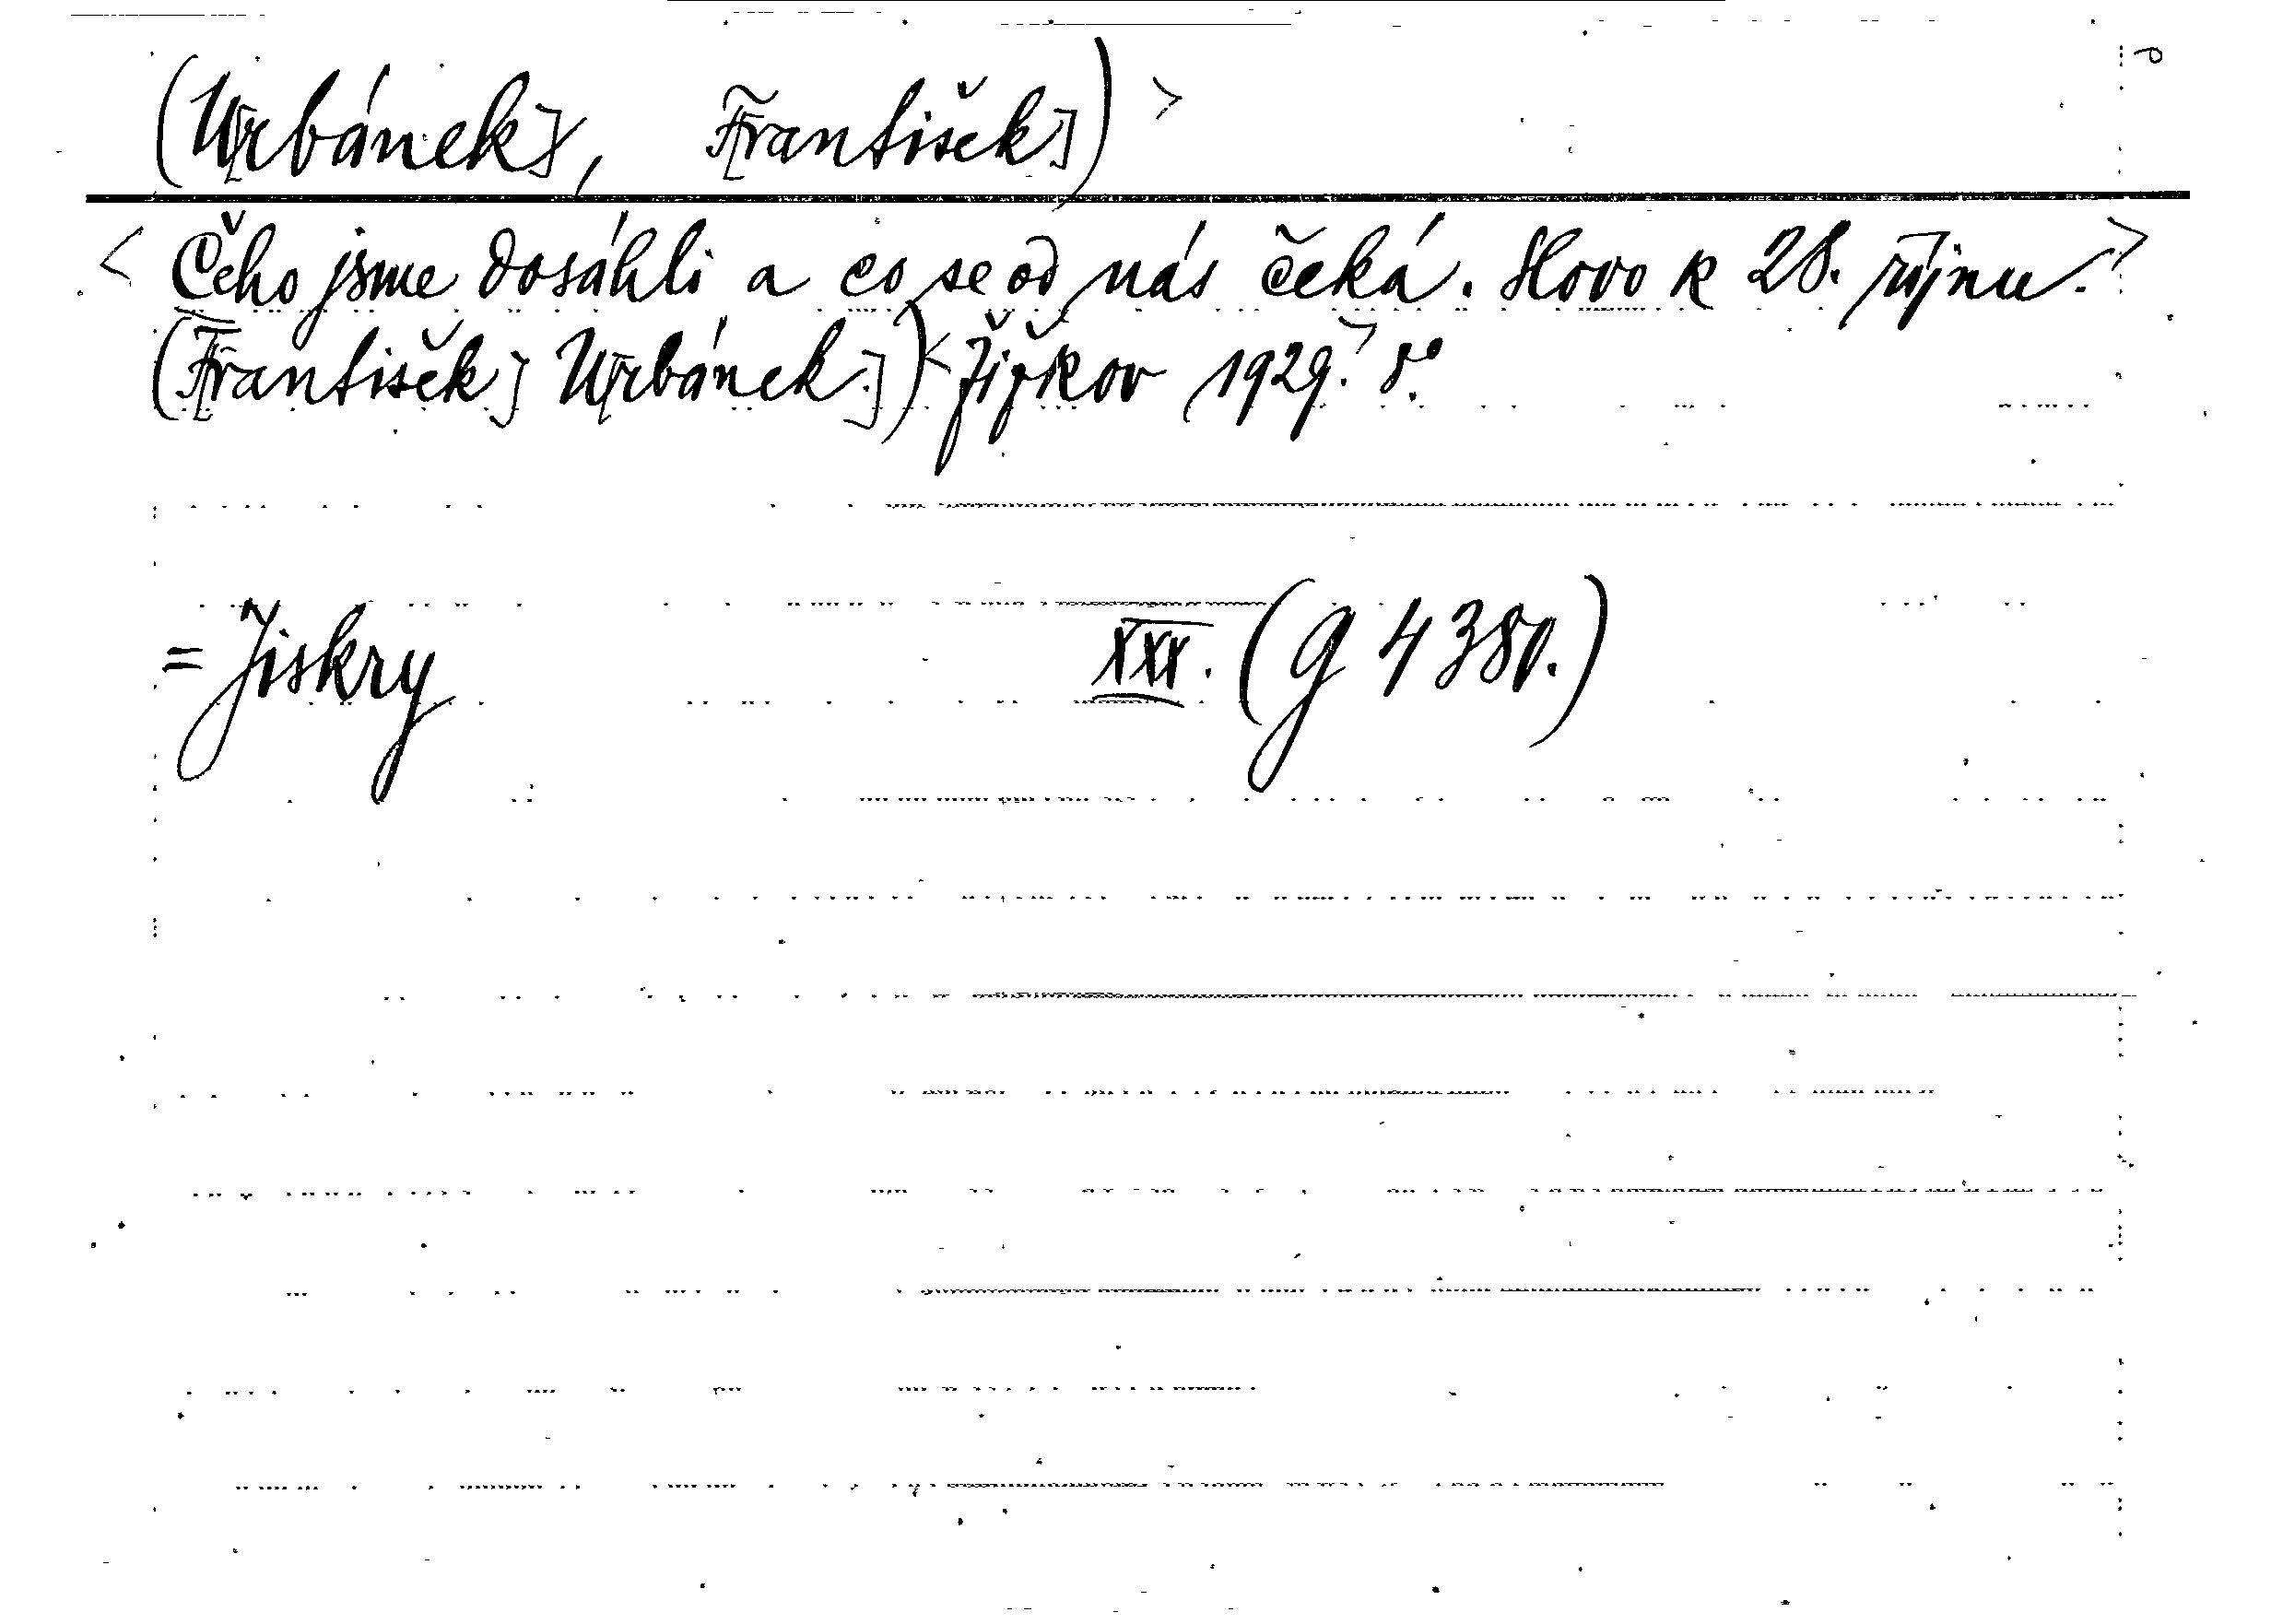 (U[rbánek], F[rantišek]) >
< Čeho jsme dosáhli a co se od nás čeká. Slovo k 28. říjnu. >
(F[rantišek] U[rbánek]) < Žižkov 1929. > 8°.
= Jiskry XXX. (G 4380.)